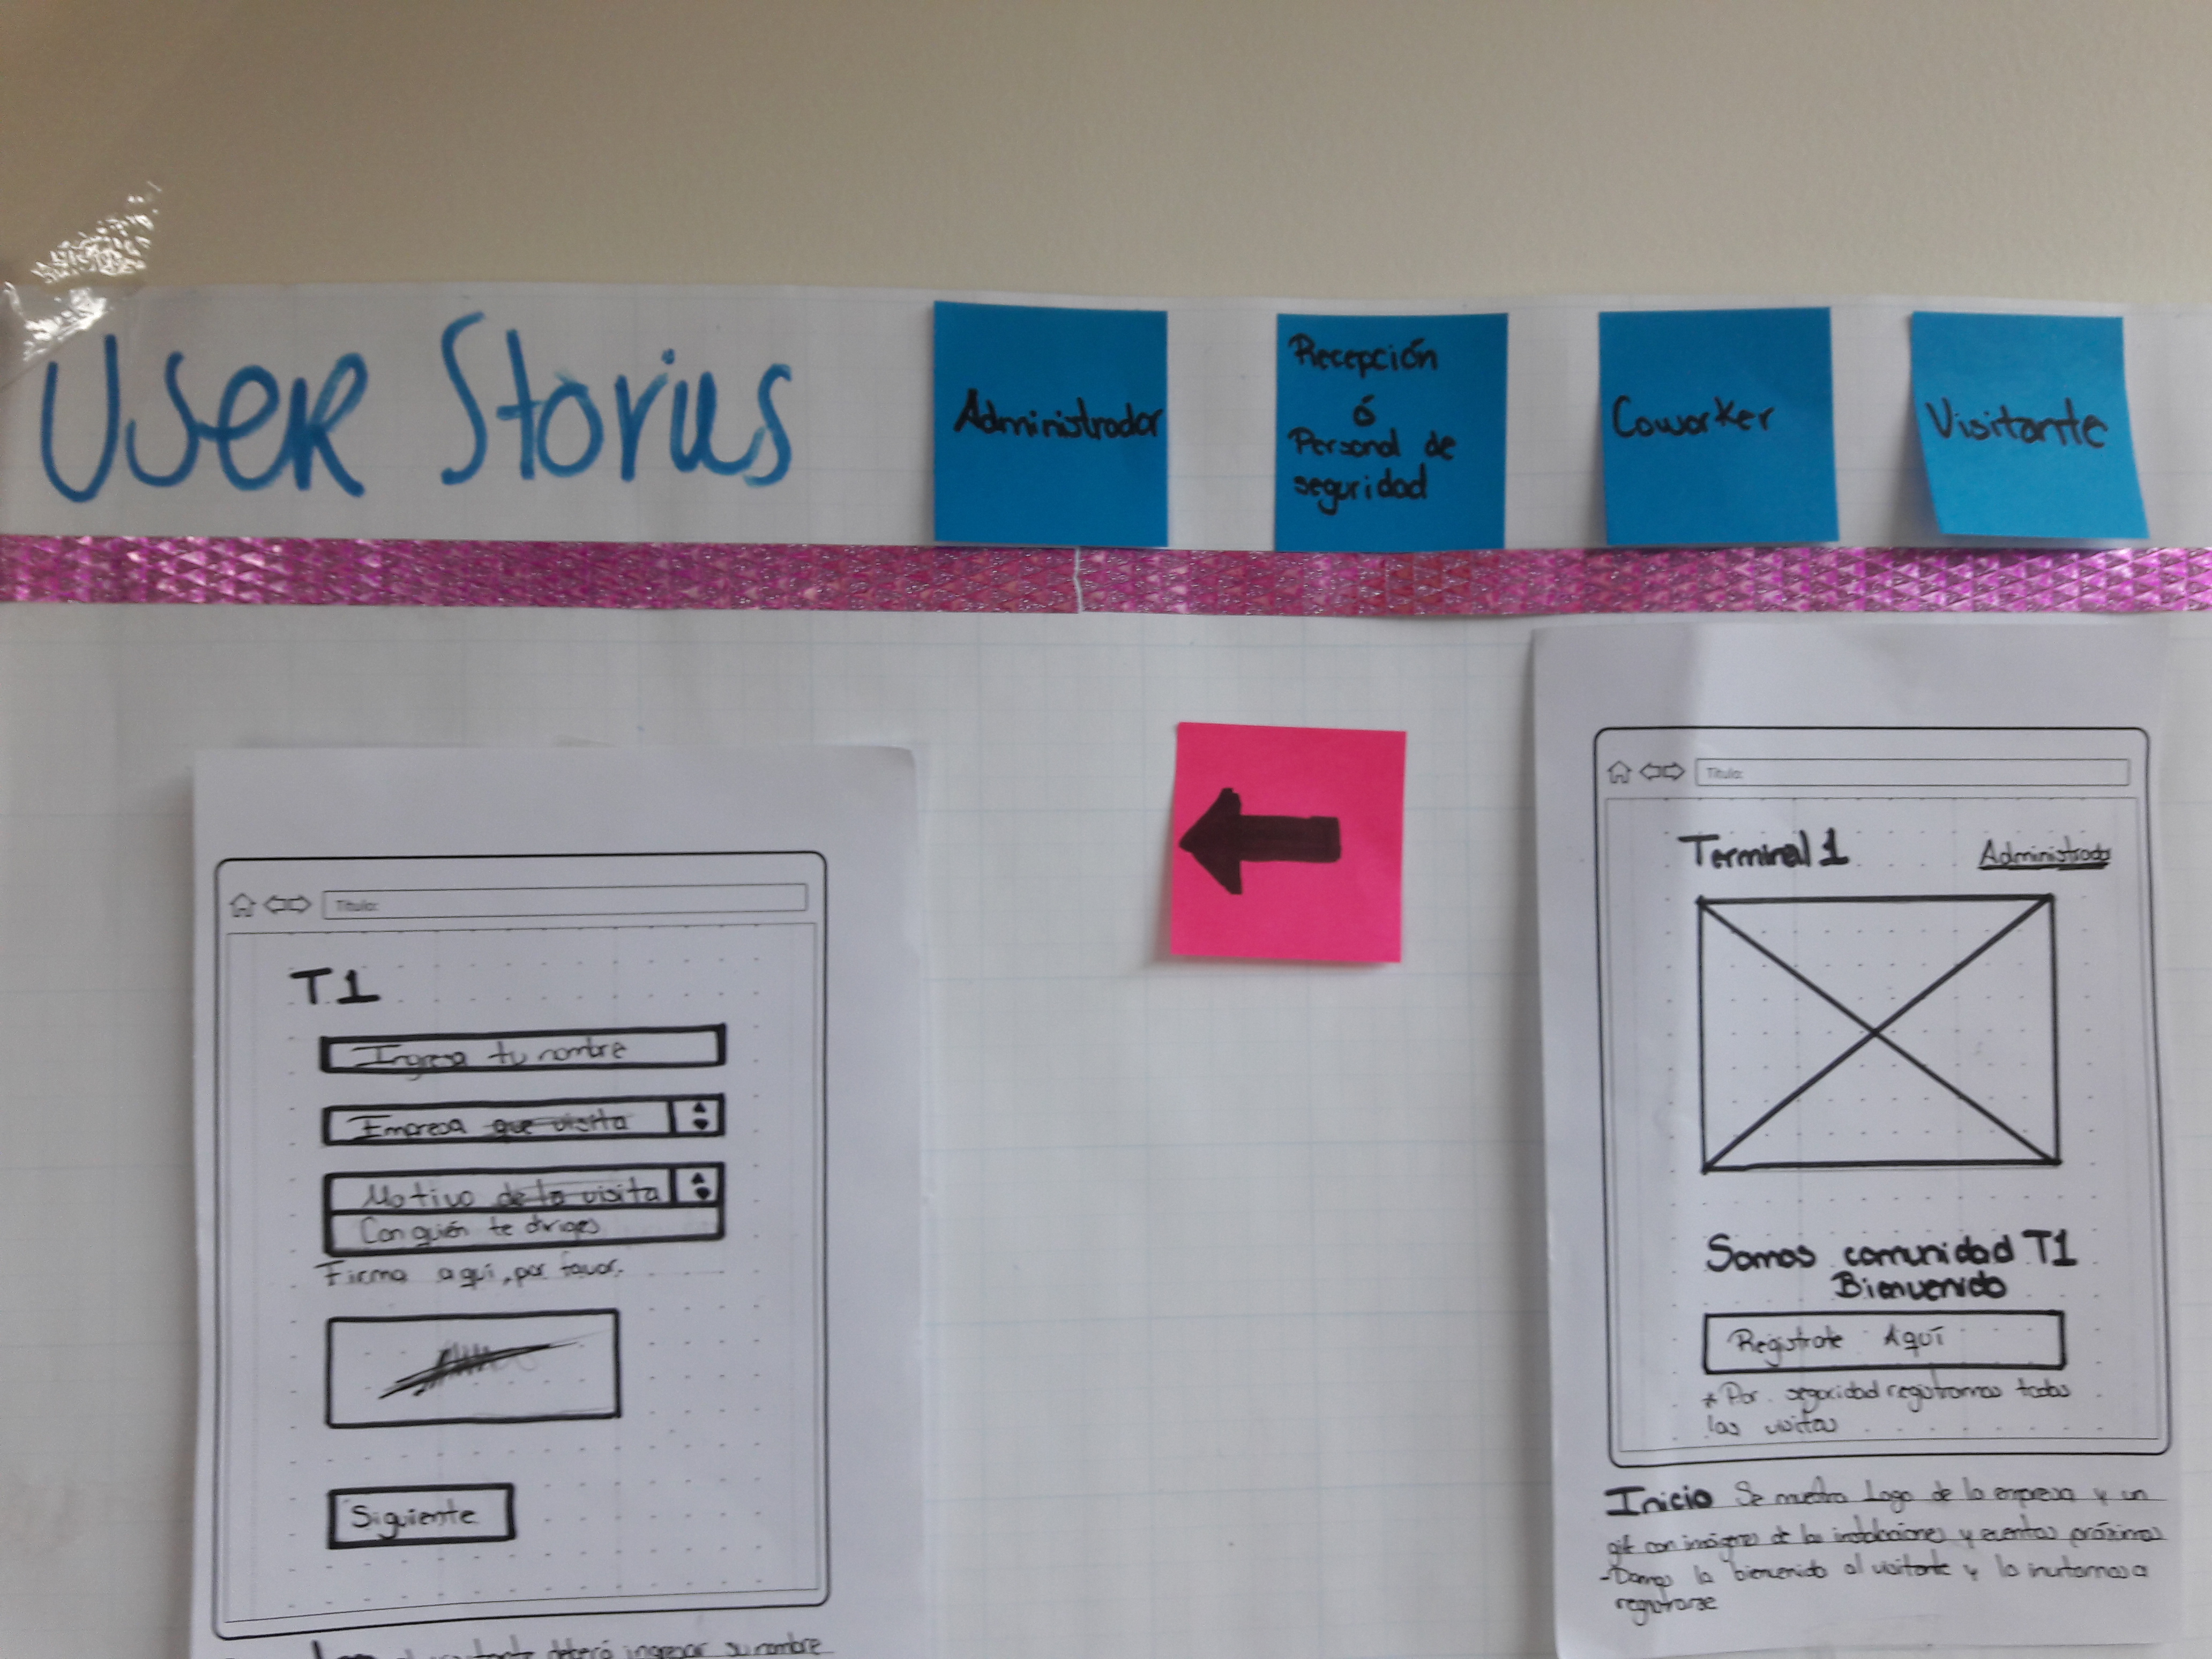 User Stories
Administrador
Recepción
ó
Personal de
seguridad
Coworker
Visitante
Título:
T1
Ingresa tu nombre
Empresa que visita
Motivo de la visita
Con quién te diriges
Firma aquí, por favor.
Siguiente
visitante deberá ingresar su nombre
Título:
Terminal 1
Administrado
Somos comunidad T1
Bienvenido
Registrate Aquí
*Por seguridad registramos todas
las visitas
Inicio Se muestra Logo de la empresa y un
gif con imágenes de las instalaciones y eventos próximos
-Damos la bienvenida al visitante y lo invitamos a
registrarse